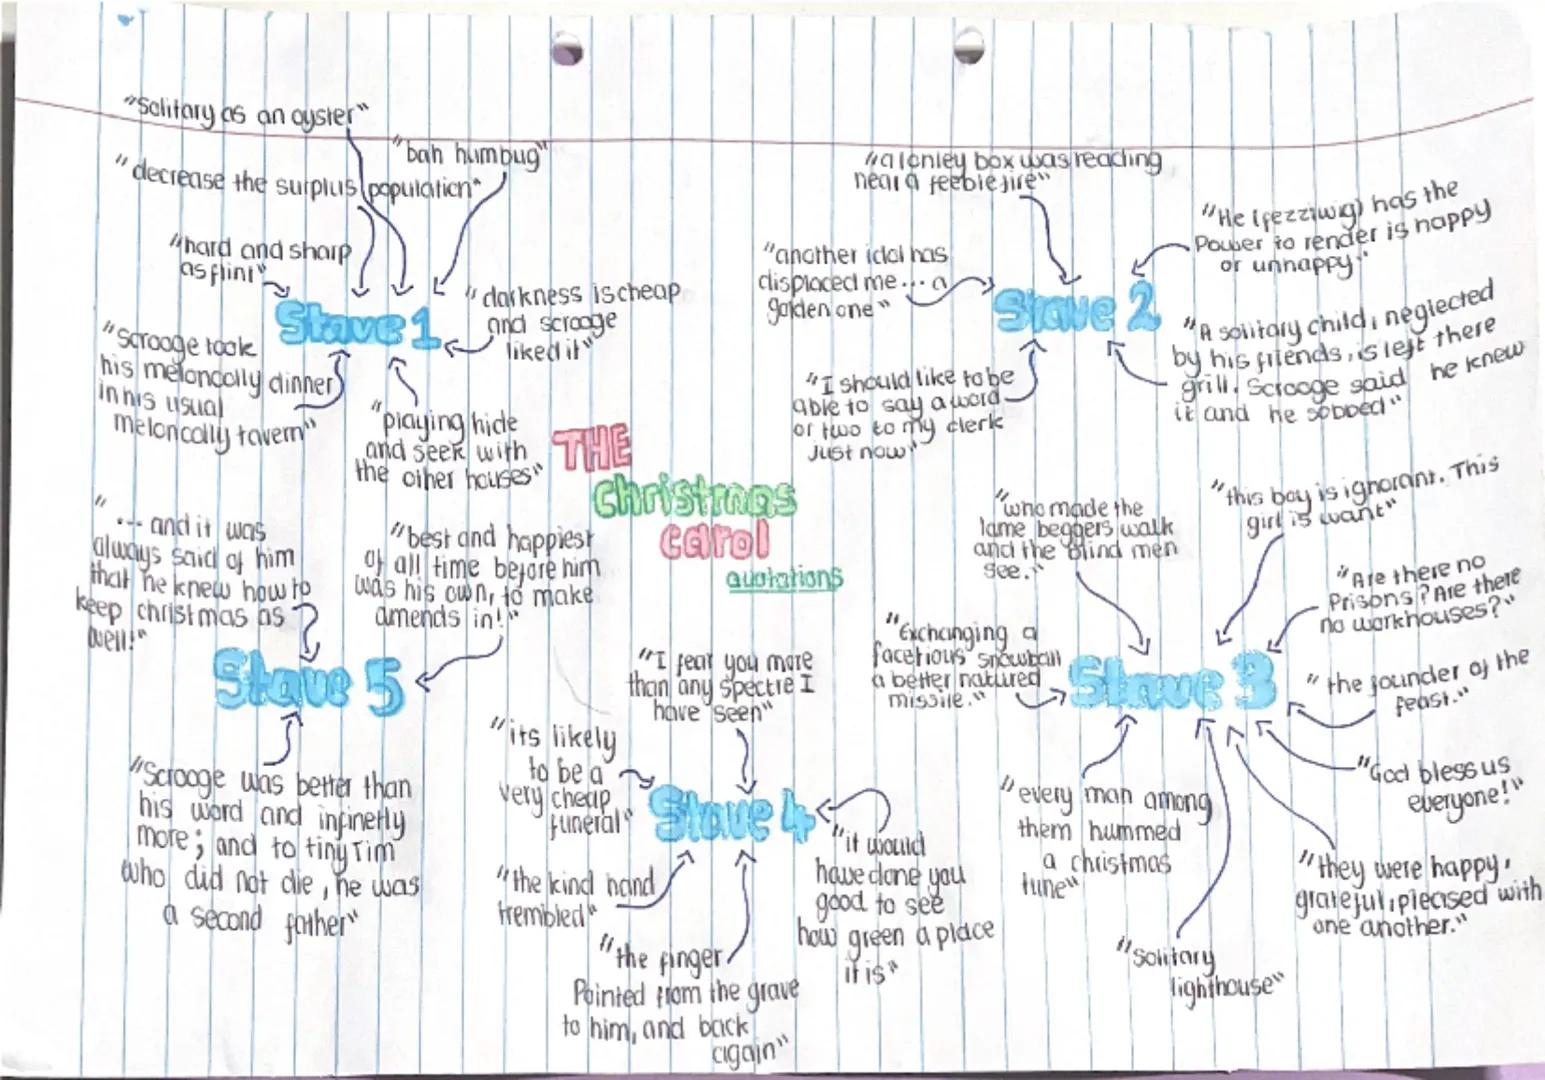 "Solitary as an oyster"
"bah humbug"
"decrease the surplus population"
"hard and sharp
as flint"
"darkness is cheap
and scrooge
liked it"
Stave 1
"Scrooge took
his meloncolly dinner
in his usual
meloncolly tavern"
"playing hide
and seek with
the other houses"
THE
Christmas
carol
quotations
"a lonley box was reading
near a feeble fire"
"He (fezziwig) has the
Power to render is happy
or unhappy."
"another idol has
displaced me... a
golden one"
Stave 2
"A solitary child, neglected
by his friends, is left there
grill. Scrooge said he knew
it and he sobbed"
"I should like to be
able to say a word
or two to my clerk
just now"
"who made the
lame beggers walk
and the blind men
see."
"this boy is ignorant. This
girl is want"
"Are there no
Prisons? Are there
no workhouses?"
"Exchanging a
facetious snowball
a better natured
missile."
Stave 3
"the founder of the
feast."
"God bless us
everyone!"
"every man among
them hummed
a christmas
tune"
"they were happy,
grateful, pleased with
one another."
"Solitary
lighthouse"
"... and it was
always said of him
that he knew how to
keep christmas as
well!"
"best and happiest
of all time before him
was his own, to make
amends in!"
Stave 5
"Scrooge was better than
his word and infinetly
more; and to tiny Tim
who did not die, he was
a second father"
"I fear you more
than any spectre I
have seen"
"its likely
to be a
very cheap
funeral"
Stave 4
"the kind hand
trembled"
"the finger
Pointed from the grave
to him, and back
again"
"it would
have done you
good to see
how green a place
it is"